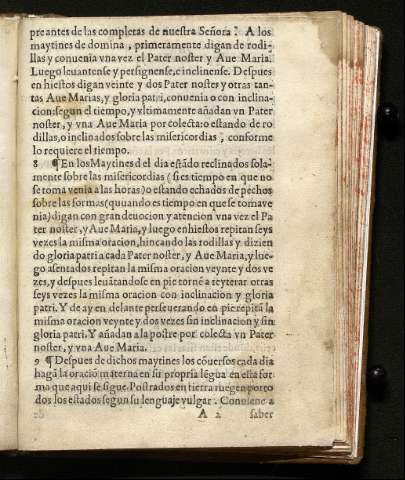 pre antes de las completas de nuestra Señora. A los
maytines de domina, primeramente digan de rodi-
llas y con uenia vna vez el Pater noster y Aue Maria.
Luego leuantense y persignense, e inclinense. Despues
enhiestos digan veinte y dos Pater noster y otras tan-
tas Aue Marias, y gloria patri, con uenia o con inclina-
cion: segun el tiempo, y vltimamente añadan vn Pater
noster, y vna Aue Maria por colecta: o estando de ro
dillas, o inclinados sobre las misericordias, conforme
lo requiere el tiempo.
8 ¶ En los Maytines del dia estãdo reclinados sola-
mente sobre las misericordias (si es tiempo en que no
se toma venia a las horas) o estando echados de pechos
sobre las formas (quuando es tiempo en que se toma ve
nia) digan con gran deuocion y atencion vna vez el Pa
ter noster, y Aue Maria, y luego enhiestos repitan seys
vezes la misma oracion, hincando las rodillas y dizien
do gloria patri a cada Pater noster, y Aue Maria, y lue-
go asentados repitan la misma oracion veynte y dos ve
zes, y despues leuãtandose en pie tornẽ a reyterar otras
seys vezes la misma oracion con inclinacion y gloria
patri. Y de ay en delante perseuerando en pie repitã la
misma oracion veynte y dos vezes sin inclinacion y sin
gloria patri. Y añadan a la postre por colecta vn Pater
noster, y vna Aue Maria.
9 ¶ Despues de dichos maytines los cõuersos cada dia
hagã la oraciõ materna en su propria lẽgua en esta for
ma que aqui se sigue. Postrados en tierra ruegen por to
dos los estados segun su lenguaje vulgar. Conuiene a
A 2 saber